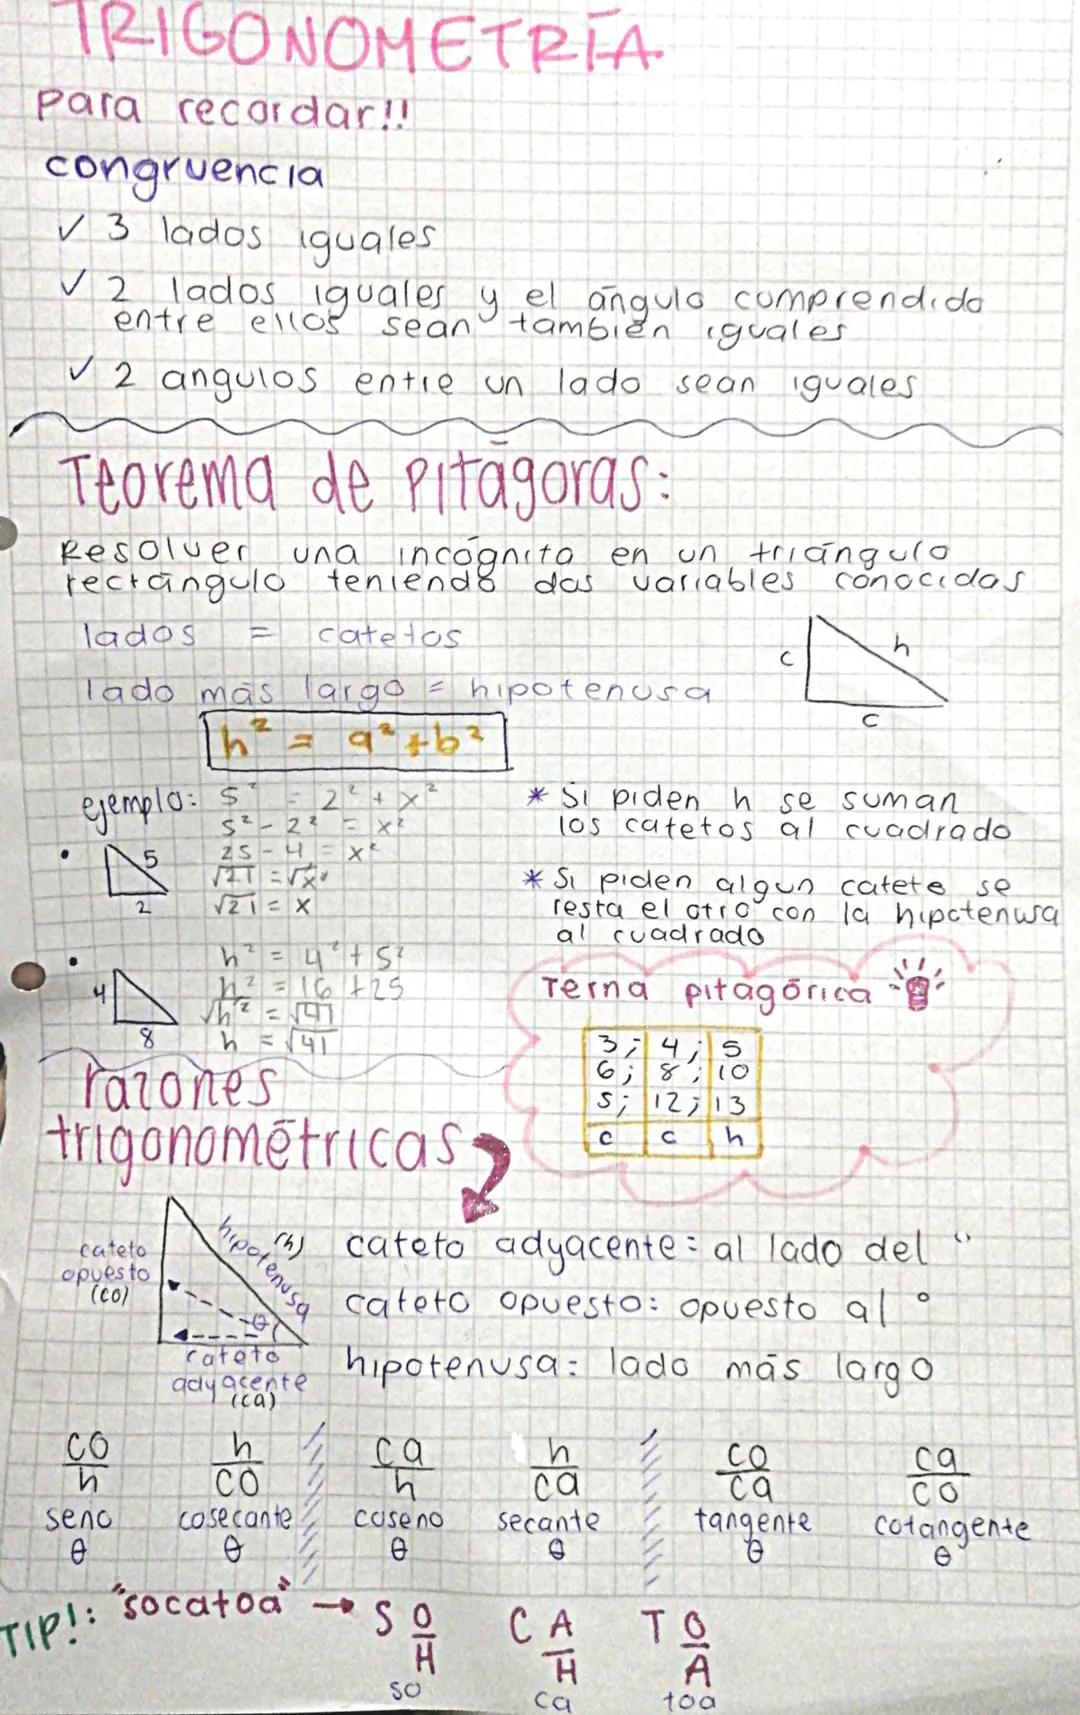 TRIGONOMETRÍA.
para recordar!!
congruencia
✓ 3 lados iguales
✓ 2 lados iguales y el ángulo comprendido
entre ellos sean también iguales
✓ 2 angulos entre un lado sean iguales
Teorema de Pitágoras:
Resolver una incógnita en un triángulo
rectángulo teniendo dos variables conocidas
lados = catetos
lado más largo = hipotenusa
c h
c
h² = a² + b²
ejemplo: 5² = 2² + x²
5² - 2² = x²
25 - 4 = x²
√21 = √x²
√21 = x
5
2
* Si piden h se suman
los catetos al cuadrado
* Si piden algun catete se
resta el otro con la hipotenusa
al cuadrado
h² = 4² + 5²
h² = 16 + 25
√h² = √41
h = √41
4
8
Terna pitagórica
3; 4; 5
6; 8; 10
5; 12; 13
c c h
razones
trigonométricas
cateto
opuesto
(co)
hipotenusa (h)
θ
cateto
adyacente
(ca)
cateto adyacente: al lado del °
cateto opuesto: opuesto al °
hipotenusa: lado más largo
co/h h/co ca/h h/ca co/ca ca/co
seno cosecante coseno secante tangente cotangente
θ θ θ θ θ θ
TIP!: "socatoa" → S O/H C A/H T O/A
so ca toa